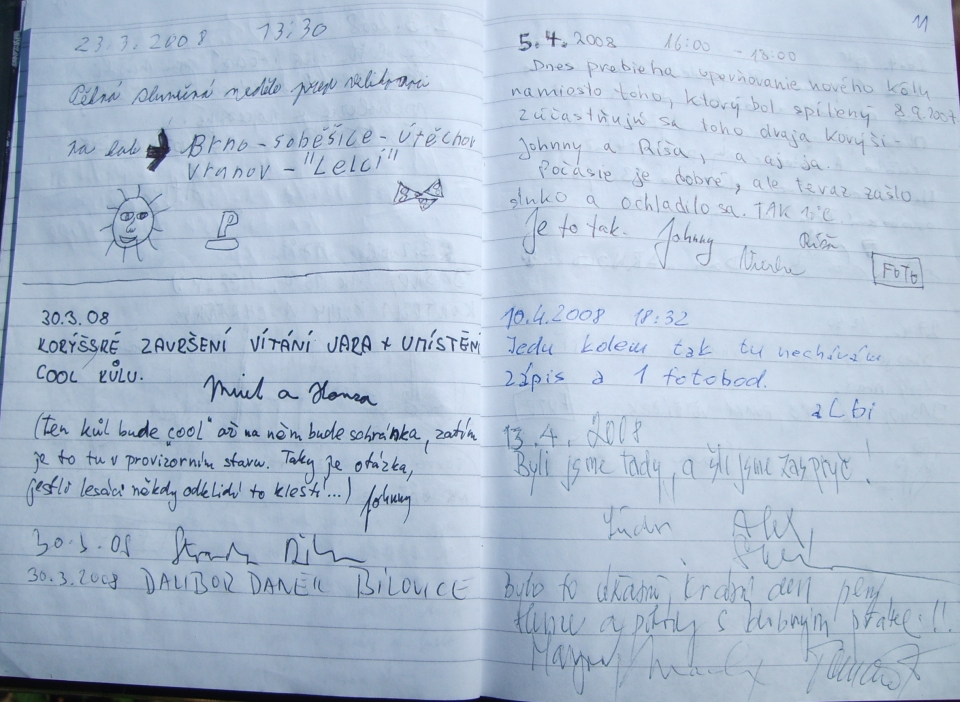 23.3.2008 13:30
Pěkná slunečná neděle před velikonoci
na kole Brno - Soběšice - Útěchov
Vranov - "Lelci"
P
30.3.08
KORÝŠSKÉ ZAVRŠENÍ VÍTÁNÍ JARA + UMÍSTĚNÍ
COOL KŮLU.
a Honza
(ten kůl bude "cool" až na něm bude schránka, zatím
je to tu v provizorním stavu. Taky je otázka,
jestli lesáci někdy odklidí to klestí...) Johnny
30.3.08
30.3.2008 DALIBOR DANĚK BÍLOVICE
11
5.4.2008 16:00 - 18:00
Dnes prebieha upevňovanie nového kôlu
namiesto toho, ktorý bol spílený 8.9.2007
zúčastňujú sa toho dvaja kovýši -
Johnny a Ríša, - a aj ja.
Počasie je dobré, ale teraz zašlo
slnko a ochladilo sa. TAK NIČ
Je to tak. Johnny Ríša
FOTO
10.4.2008 18:32
Jedu kolem tak tu nechávám
zápis a 1 fotobod.
aLbi
13.4. 2008
Byli jsme tady, a šli jsme zas pryč!
Alex
Bylo to úžasné, krásný den plný
a pohody s přáteli!!